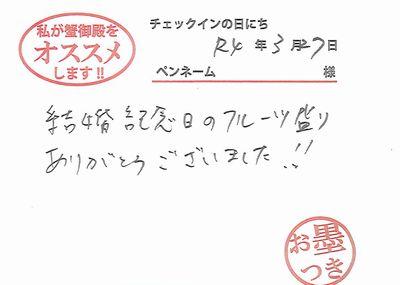 私が蟹御殿を
オススメ
します!!
チェックインの日にち
R4年3月27日
ペンネーム 様
結婚記念日のフルーツ盛り
ありがとうございました!!
お墨
つき